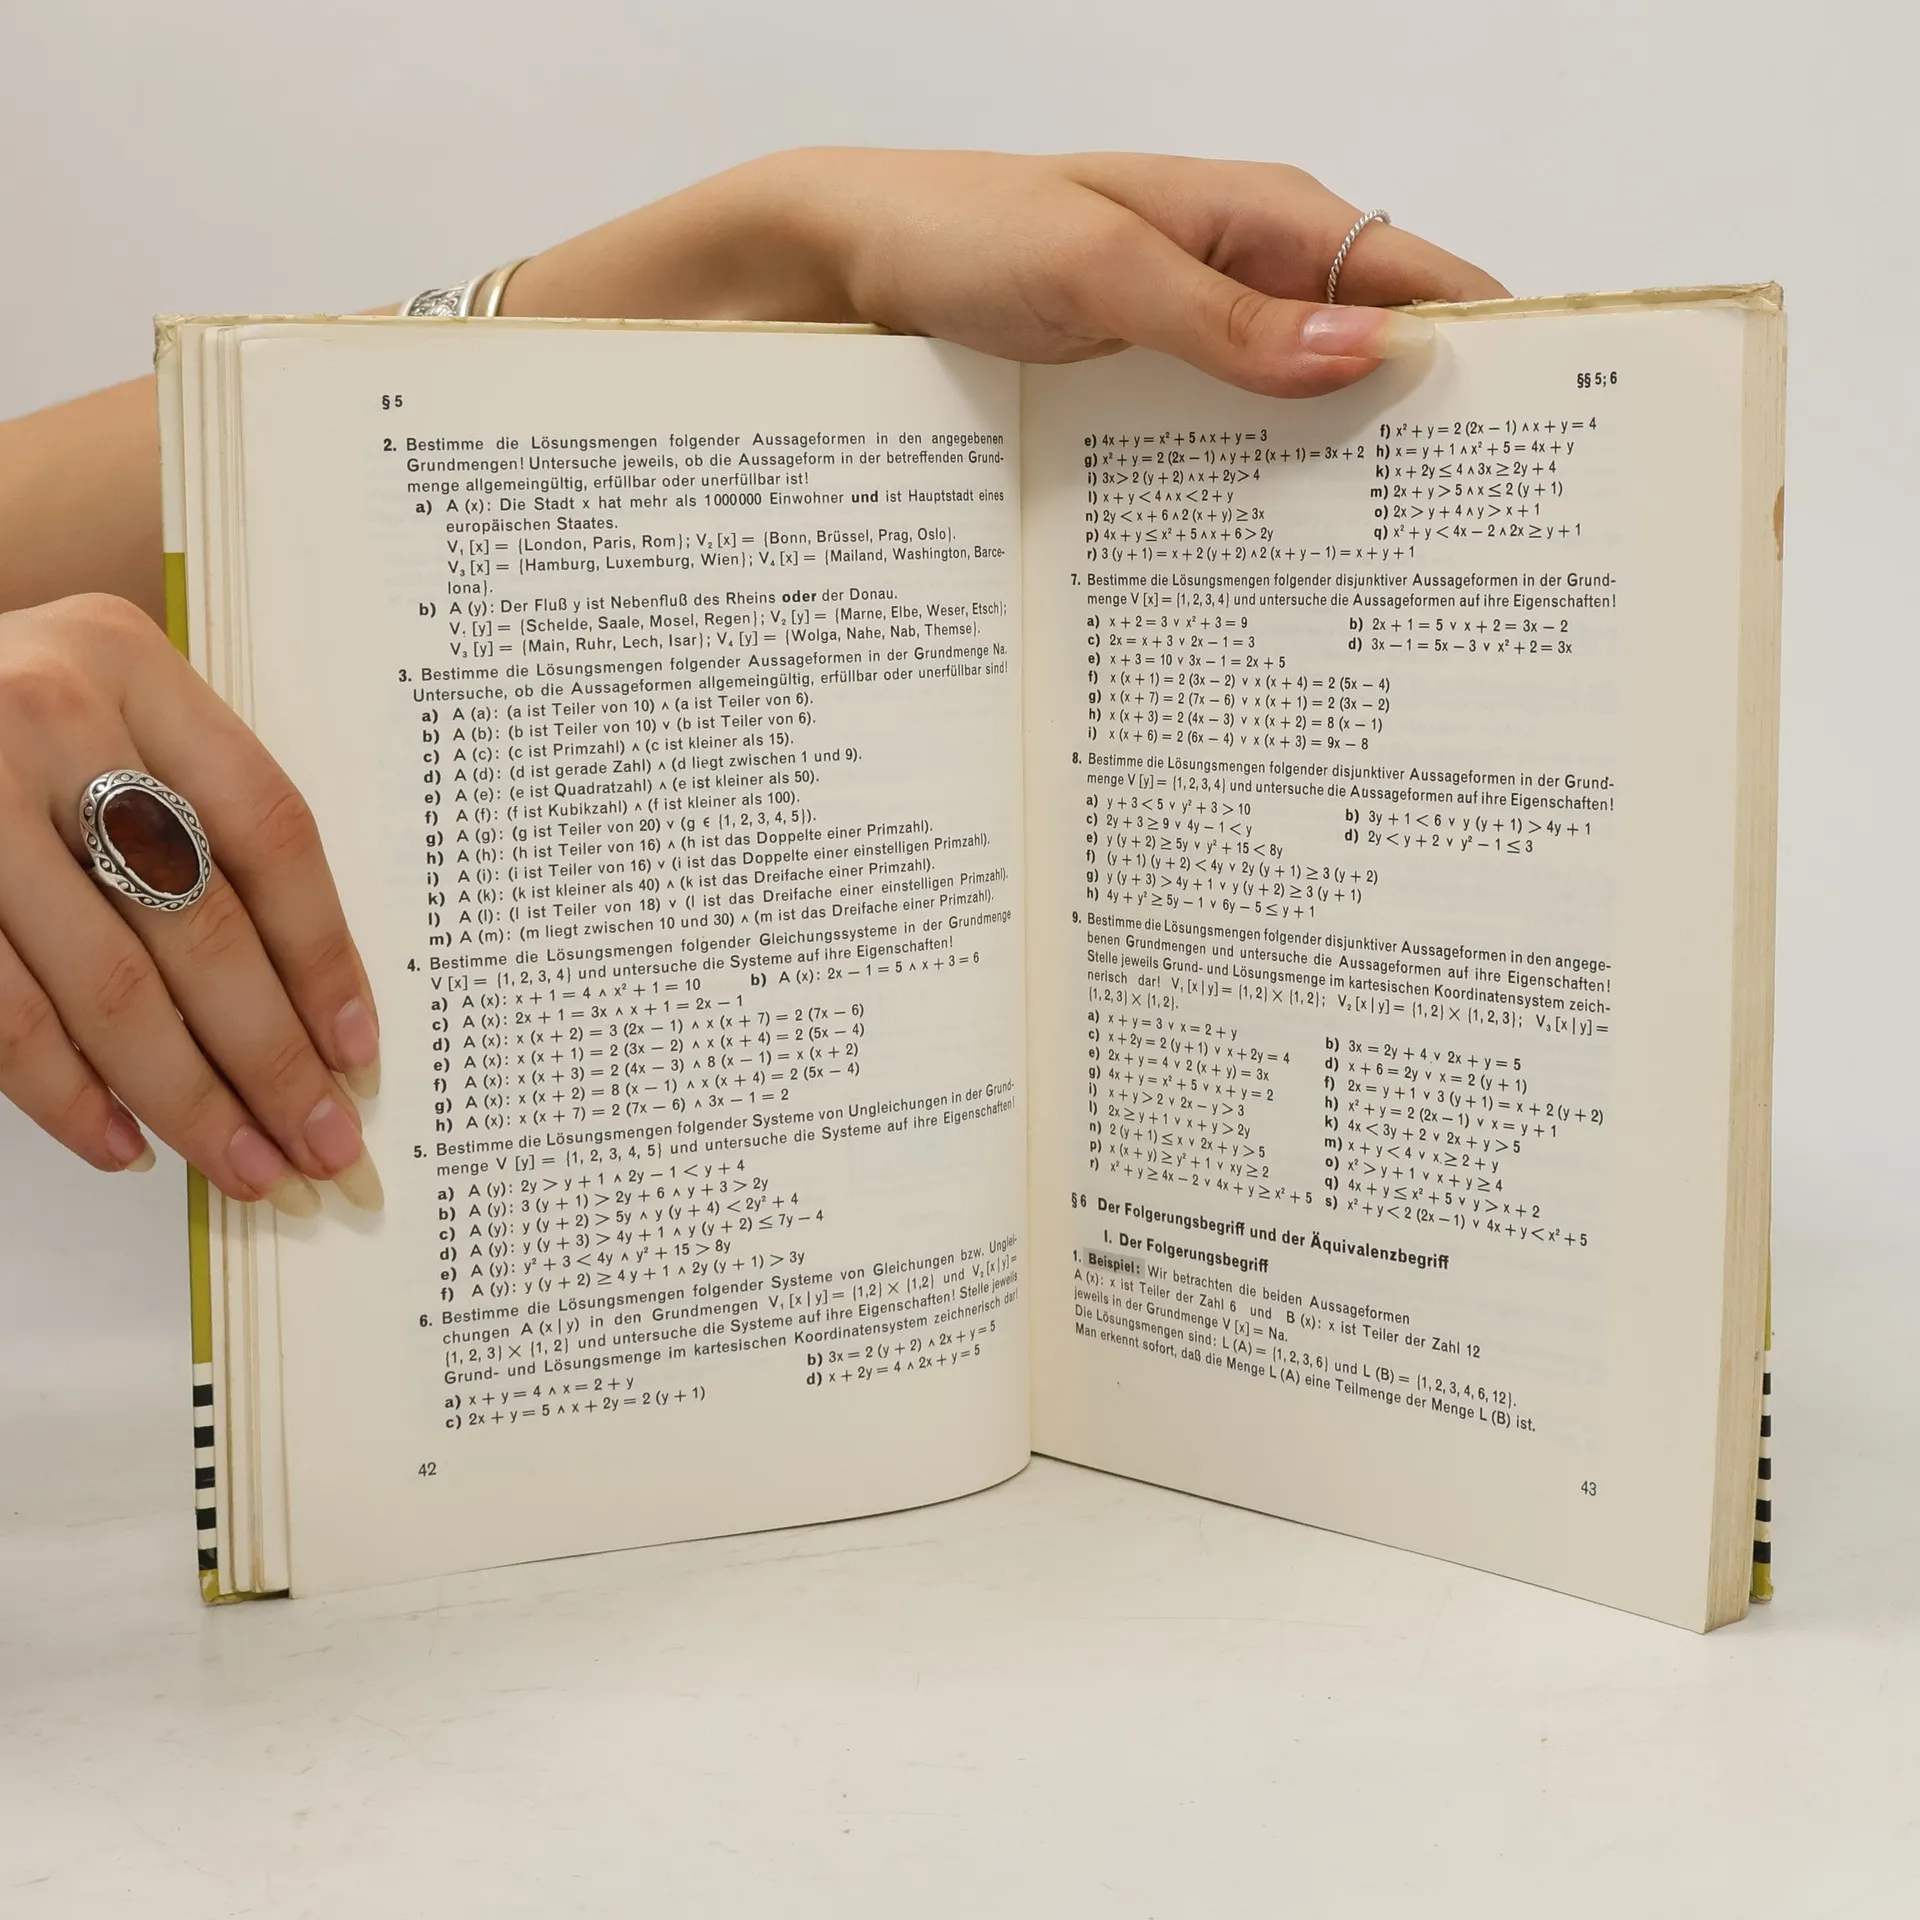 § 5
2. Bestimme die Lösungsmengen folgender Aussageformen in den angegebenen
Grundmengen! Untersuche jeweils, ob die Aussageform in der betreffenden Grund-
menge allgemeingültig, erfüllbar oder unerfüllbar ist!
a) A (x): Die Stadt x hat mehr als 1000000 Einwohner und ist Hauptstadt eines
europäischen Staates.
V₁ [x] = {London, Paris, Rom}; V₂ [x] = {Bonn, Brüssel, Prag, Oslo}.
V₃ [x] = {Hamburg, Luxemburg, Wien}; V₄ [x] = {Mailand, Washington, Barce-
lona}.
b) A (y): Der Fluß y ist Nebenfluß des Rheins oder der Donau.
V₁ [y] = {Schelde, Saale, Mosel, Regen}; V₂ [y] = {Marne, Elbe, Weser, Etsch};
V₃ [y] = {Main, Ruhr, Lech, Isar}; V₄ [y] = {Wolga, Nahe, Nab, Themse}.
3. Bestimme die Lösungsmengen folgender Aussageformen in der Grundmenge Na.
Untersuche, ob die Aussageformen allgemeingültig, erfüllbar oder unerfüllbar sind!
a) A (a): (a ist Teiler von 10) ∧ (a ist Teiler von 6).
b) A (b): (b ist Teiler von 10) ∨ (b ist Teiler von 6).
c) A (c): (c ist Primzahl) ∧ (c ist kleiner als 15).
d) A (d): (d ist gerade Zahl) ∧ (d liegt zwischen 1 und 9).
e) A (e): (e ist Quadratzahl) ∧ (e ist kleiner als 50).
f) A (f): (f ist Kubikzahl) ∧ (f ist kleiner als 100).
g) A (g): (g ist Teiler von 20) ∨ (g ϵ {1, 2, 3, 4, 5}).
h) A (h): (h ist Teiler von 16) ∧ (h ist das Doppelte einer Primzahl).
i) A (i): (i ist Teiler von 16) ∨ (i ist das Doppelte einer einstelligen Primzahl).
k) A (k): (k ist kleiner als 40) ∧ (k ist das Dreifache einer Primzahl).
l) A (l): (l ist Teiler von 18) ∨ (l ist das Dreifache einer einstelligen Primzahl).
m) A (m): (m liegt zwischen 10 und 30) ∧ (m ist das Dreifache einer Primzahl).
4. Bestimme die Lösungsmengen folgender Gleichungssysteme in der Grundmenge
V [x] = {1, 2, 3, 4} und untersuche die Systeme auf ihre Eigenschaften!
a) A (x): x + 1 = 4 ∧ x² + 1 = 10 b) A (x): 2x − 1 = 5 ∧ x + 3 = 6
c) A (x): 2x + 1 = 3x ∧ x + 1 = 2x − 1
d) A (x): x (x + 2) = 3 (2x − 1) ∧ x (x + 7) = 2 (7x − 6)
e) A (x): x (x + 1) = 2 (3x − 2) ∧ x (x + 4) = 2 (5x − 4)
f) A (x): x (x + 3) = 2 (4x − 3) ∧ 8 (x − 1) = x (x + 2)
g) A (x): x (x + 2) = 8 (x − 1) ∧ x (x + 4) = 2 (5x − 4)
h) A (x): x (x + 7) = 2 (7x − 6) ∧ 3x − 1 = 2
5. Bestimme die Lösungsmengen folgender Systeme von Ungleichungen in der Grund-
menge V [y] = {1, 2, 3, 4, 5} und untersuche die Systeme auf ihre Eigenschaften!
a) A (y): 2y > y + 1 ∧ 2y − 1 < y + 4
b) A (y): 3 (y + 1) > 2y + 6 ∧ y + 3 > 2y
c) A (y): y (y + 2) > 5y ∧ y (y + 4) < 2y² + 4
d) A (y): y (y + 3) > 4y + 1 ∧ y (y + 2) ≤ 7y − 4
e) A (y): y² + 3 < 4y ∧ y² + 15 > 8y
f) A (y): y (y + 2) ≥ 4y + 1 ∧ 2y (y + 1) > 3y
6. Bestimme die Lösungsmengen folgender Systeme von Gleichungen bzw. Unglei-
chungen A (x | y) in den Grundmengen V₁ [x | y] = {1,2} × {1,2} und V₂ [x | y] =
{1, 2, 3} × {1, 2} und untersuche die Systeme auf ihre Eigenschaften! Stelle jeweils
Grund- und Lösungsmenge im kartesischen Koordinatensystem zeichnerisch dar!
a) x + y = 4 ∧ x = 2 + y b) 3x = 2 (y + 2) ∧ 2x + y = 5
c) 2x + y = 5 ∧ x + 2y = 2 (y + 1) d) x + 2y = 4 ∧ 2x + y = 5
42
§§ 5; 6
e) 4x + y = x² + 5 ∧ x + y = 3 f) x² + y = 2 (2x − 1) ∧ x + y = 4
g) x² + y = 2 (2x − 1) ∧ y + 2 (x + 1) = 3x + 2 h) x = y + 1 ∧ x² + 5 = 4x + y
i) 3x > 2 (y + 2) ∧ x + 2y > 4 k) x + 2y ≤ 4 ∧ 3x ≥ 2y + 4
l) x + y < 4 ∧ x < 2 + y m) 2x + y > 5 ∧ x ≤ 2 (y + 1)
n) 2y < x + 6 ∧ 2 (x + y) ≥ 3x o) 2x > y + 4 ∧ y > x + 1
p) 4x + y ≤ x² + 5 ∧ x + 6 > 2y q) x² + y < 4x − 2 ∧ 2x ≥ y + 1
r) 3 (y + 1) = x + 2 (y + 2) ∧ 2 (x + y − 1) = x + y + 1
7. Bestimme die Lösungsmengen folgender disjunktiver Aussageformen in der Grund-
menge V [x] = {1, 2, 3, 4} und untersuche die Aussageformen auf ihre Eigenschaften!
a) x + 2 = 3 ∨ x² + 3 = 9 b) 2x + 1 = 5 ∨ x + 2 = 3x − 2
c) 2x = x + 3 ∨ 2x − 1 = 3 d) 3x − 1 = 5x − 3 ∨ x² + 2 = 3x
e) x + 3 = 10 ∨ 3x − 1 = 2x + 5
f) x (x + 1) = 2 (3x − 2) ∨ x (x + 4) = 2 (5x − 4)
g) x (x + 7) = 2 (7x − 6) ∨ x (x + 1) = 2 (3x − 2)
h) x (x + 3) = 2 (4x − 3) ∨ x (x + 2) = 8 (x − 1)
i) x (x + 6) = 2 (6x − 4) ∨ x (x + 3) = 9x − 8
8. Bestimme die Lösungsmengen folgender disjunktiver Aussageformen in der Grund-
menge V [y] = {1, 2, 3, 4} und untersuche die Aussageformen auf ihre Eigenschaften!
a) y + 3 < 5 ∨ y² + 3 > 10 b) 3y + 1 < 6 ∨ y (y + 1) > 4y + 1
c) 2y + 3 ≥ 9 ∨ 4y − 1 < y d) 2y < y + 2 ∨ y² − 1 ≤ 3
e) y (y + 2) ≥ 5y ∨ y² + 15 < 8y
f) (y + 1) (y + 2) < 4y ∨ 2y (y + 1) ≥ 3 (y + 2)
g) y (y + 3) > 4y + 1 ∨ y (y + 2) ≥ 3 (y + 1)
h) 4y + y² ≥ 5y − 1 ∨ 6y − 5 ≤ y + 1
9. Bestimme die Lösungsmengen folgender disjunktiver Aussageformen in den angege-
benen Grundmengen und untersuche die Aussageformen auf ihre Eigenschaften!
Stelle jeweils Grund- und Lösungsmenge im kartesischen Koordinatensystem zeich-
nerisch dar! V₁ [x | y] = {1, 2} × {1, 2}; V₂ [x | y] = {1, 2} × {1, 2, 3}; V₃ [x | y] =
{1, 2, 3} × {1, 2}.
a) x + y = 3 ∨ x = 2 + y b) 3x = 2y + 4 ∨ 2x + y = 5
c) x + 2y = 2 (y + 1) ∨ x + 2y = 4 d) x + 6 = 2y ∨ x = 2 (y + 1)
e) 2x + y = 4 ∨ 2 (x + y) = 3x f) 2x = y + 1 ∨ 3 (y + 1) = x + 2 (y + 2)
g) 4x + y = x² + 5 ∨ x + y = 2 h) x² + y = 2 (2x − 1) ∨ x = y + 1
i) x + y > 2 ∨ 2x − y > 3 k) 4x < 3y + 2 ∨ 2x + y > 5
l) 2x ≥ y + 1 ∨ x + y > 2y m) x + y < 4 ∨ x ≥ 2 + y
n) 2 (y + 1) ≤ x ∨ 2x + y > 5 o) x² > y + 1 ∨ x + y ≥ 4
p) x (x + y) ≥ y² + 1 ∨ xy ≥ 2 q) 4x + y ≤ x² + 5 ∨ y > x + 2
r) x² + y ≥ 4x − 2 ∨ 4x + y ≥ x² + 5 s) x² + y < 2 (2x − 1) ∨ 4x + y < x² + 5
§ 6 Der Folgerungsbegriff und der Äquivalenzbegriff
I. Der Folgerungsbegriff
1. Beispiel: Wir betrachten die beiden Aussageformen
A (x): x ist Teiler der Zahl 6 und B (x): x ist Teiler der Zahl 12
jeweils in der Grundmenge V [x] = Na.
Die Lösungsmengen sind: L (A) = {1, 2, 3, 6} und L (B) = {1, 2, 3, 4, 6, 12}.
Man erkennt sofort, daß die Menge L (A) eine Teilmenge der Menge L (B) ist.
43